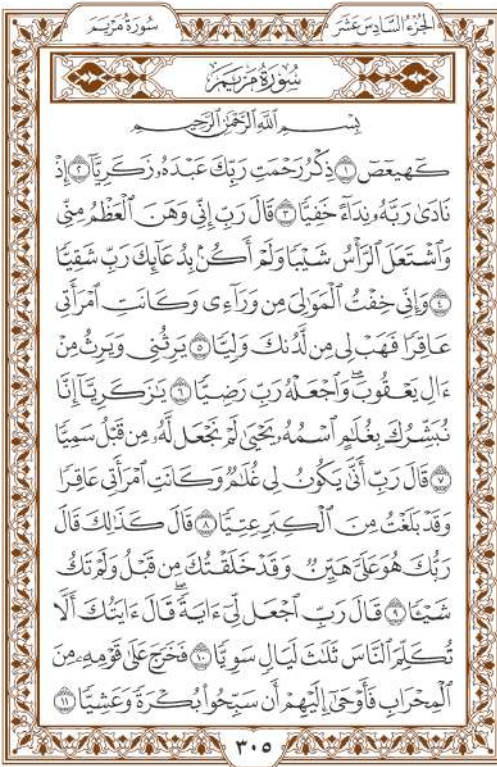 الجُزْءُ السَّادِسَ عَشَرَ
سُورَةُ مَرْيَمَ
سُورَةُ مَرْيَمَ
بِسْمِ ٱللَّهِ ٱلرَّحْمَٰنِ ٱلرَّحِيمِ
كٓهيعٓصٓ ١ ذِكْرُ رَحْمَتِ رَبِّكَ عَبْدَهُۥ زَكَرِيَّآ ٢ إِذْ
نَادَىٰ رَبَّهُۥ نِدَآءً خَفِيًّا ٣ قَالَ رَبِّ إِنِّي وَهَنَ ٱلْعَظْمُ مِنِّي
وَٱشْتَعَلَ ٱلرَّأْسُ شَيْبًا وَلَمْ أَكُنۢ بِدُعَآئِكَ رَبِّ شَقِيًّا
٤ وَإِنِّي خِفْتُ ٱلْمَوَٰلِيَ مِن وَرَآءِي وَكَانَتِ ٱمْرَأَتِي
عَاقِرًا فَهَبْ لِي مِن لَّدُنكَ وَلِيًّا ٥ يَرِثُنِي وَيَرِثُ مِنْ
ءَالِ يَعْقُوبَۖ وَٱجْعَلْهُ رَبِّ رَضِيًّا ٦ يَٰزَكَرِيَّآ إِنَّا
نُبَشِّرُكَ بِغُلَٰمٍ ٱسْمُهُۥ يَحْيَىٰ لَمْ نَجْعَل لَّهُۥ مِن قَبْلُ سَمِيًّا
٧ قَالَ رَبِّ أَنَّىٰ يَكُونُ لِي غُلَٰمٌ وَكَانَتِ ٱمْرَأَتِي عَاقِرًا
وَقَدْ بَلَغْتُ مِنَ ٱلْكِبَرِ عِتِيًّا ٨ قَالَ كَذَٰلِكَ قَالَ
رَبُّكَ هُوَ عَلَيَّ هَيِّنٌ وَقَدْ خَلَقْتُكَ مِن قَبْلُ وَلَمْ تَكُ
شَيْـًٔا ٩ قَالَ رَبِّ ٱجْعَل لِّيٓ ءَايَةًۖ قَالَ ءَايَتُكَ أَلَّا
تُكَلِّمَ ٱلنَّاسَ ثَلَٰثَ لَيَالٍ سَوِيًّا ١٠ فَخَرَجَ عَلَىٰ قَوْمِهِۦ مِنَ
ٱلْمِحْرَابِ فَأَوْحَىٰٓ إِلَيْهِمْ أَن سَبِّحُوا۟ بُكْرَةً وَعَشِيًّا ١١
٣٠٥